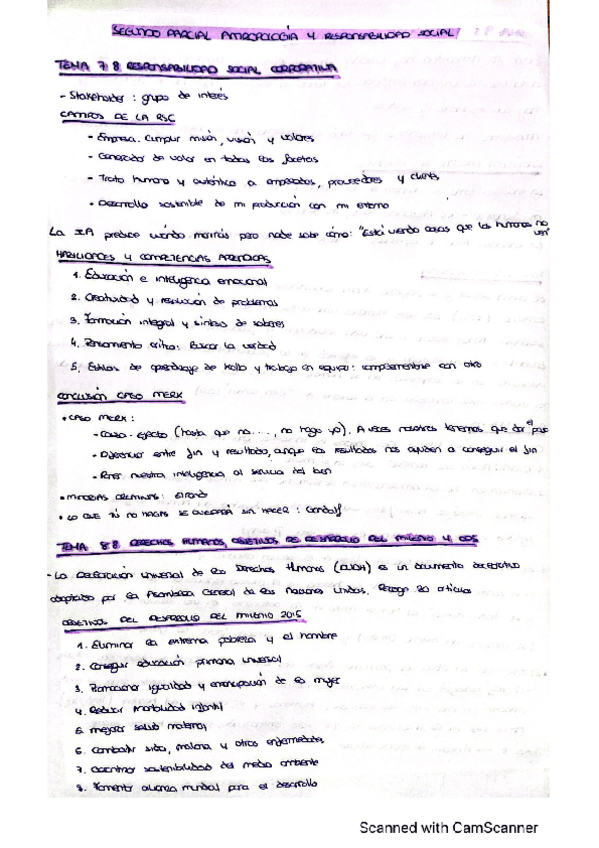 SEGUNDO PARCIAL ANTROPOLOGÍA Y RESPONSABILIDAD SOCIAL
TEMA 7: 8. RESPONSABILIDAD SOCIAL CORPORATIVA
- Stakeholder: grupo de interés
CAMPOS DE LA RSC
- Empresa. Cumplir misión, visión y valores
- Generador de valor en todas las facetas
- Trato humano y auténtico a empleados, proveedores y clientes
- Desarrollo sostenible de mi producción con mi entorno
La IA predice cuándo morirás pero nadie sabe cómo: "Está viendo cosas que los humanos no ven"
HABILIDADES Y COMPETENCIAS
1. Educación e inteligencia emocional
2. Creatividad y resolución de problemas
3. Formación integral y síntesis de saberes
4. Pensamiento crítico: Buscar la verdad
5. Estilos de aprendizaje de Kolb y trabajo en equipo: complementarse con otro
CONCLUSIÓN CASO MERK
• CASO MERK:
- Causa-Efecto (hasta que no..., no hago yo). A veces nosotros tenemos que dar el paso
- Diferenciar entre fin y resultado, aunque los resultados nos ayuden a conseguir el fin
- Poner nuestra inteligencia al servicio del bien
• MINORÍAS CREATIVAS: Elrond
• LO QUE TÚ NO HAGAS SE QUEDARÁ SIN HACER: Gandalf
TEMA 8: 8. DERECHOS HUMANOS OBJETIVOS DE DESARROLLO DEL MILENIO Y ODS
- La Declaración Universal de los Derechos Humanos (DUDH) es un documento declarativo
adoptado por la Asamblea General de las Naciones Unidas. Recoge 30 artículos
OBJETIVOS DEL DESARROLLO DEL MILENIO 2015
1. Eliminar la extrema pobreza y el hambre
2. Conseguir educación primaria universal
3. Promocionar igualdad y emancipación de la mujer
4. Reducir mortalidad infantil
5. mejorar salud materna
6. Combatir sida, malaria y otras enfermedades
7. Garantizar sostenibilidad del medio ambiente
8. Fomentar alianza mundial para el desarrollo
Scanned with CamScanner